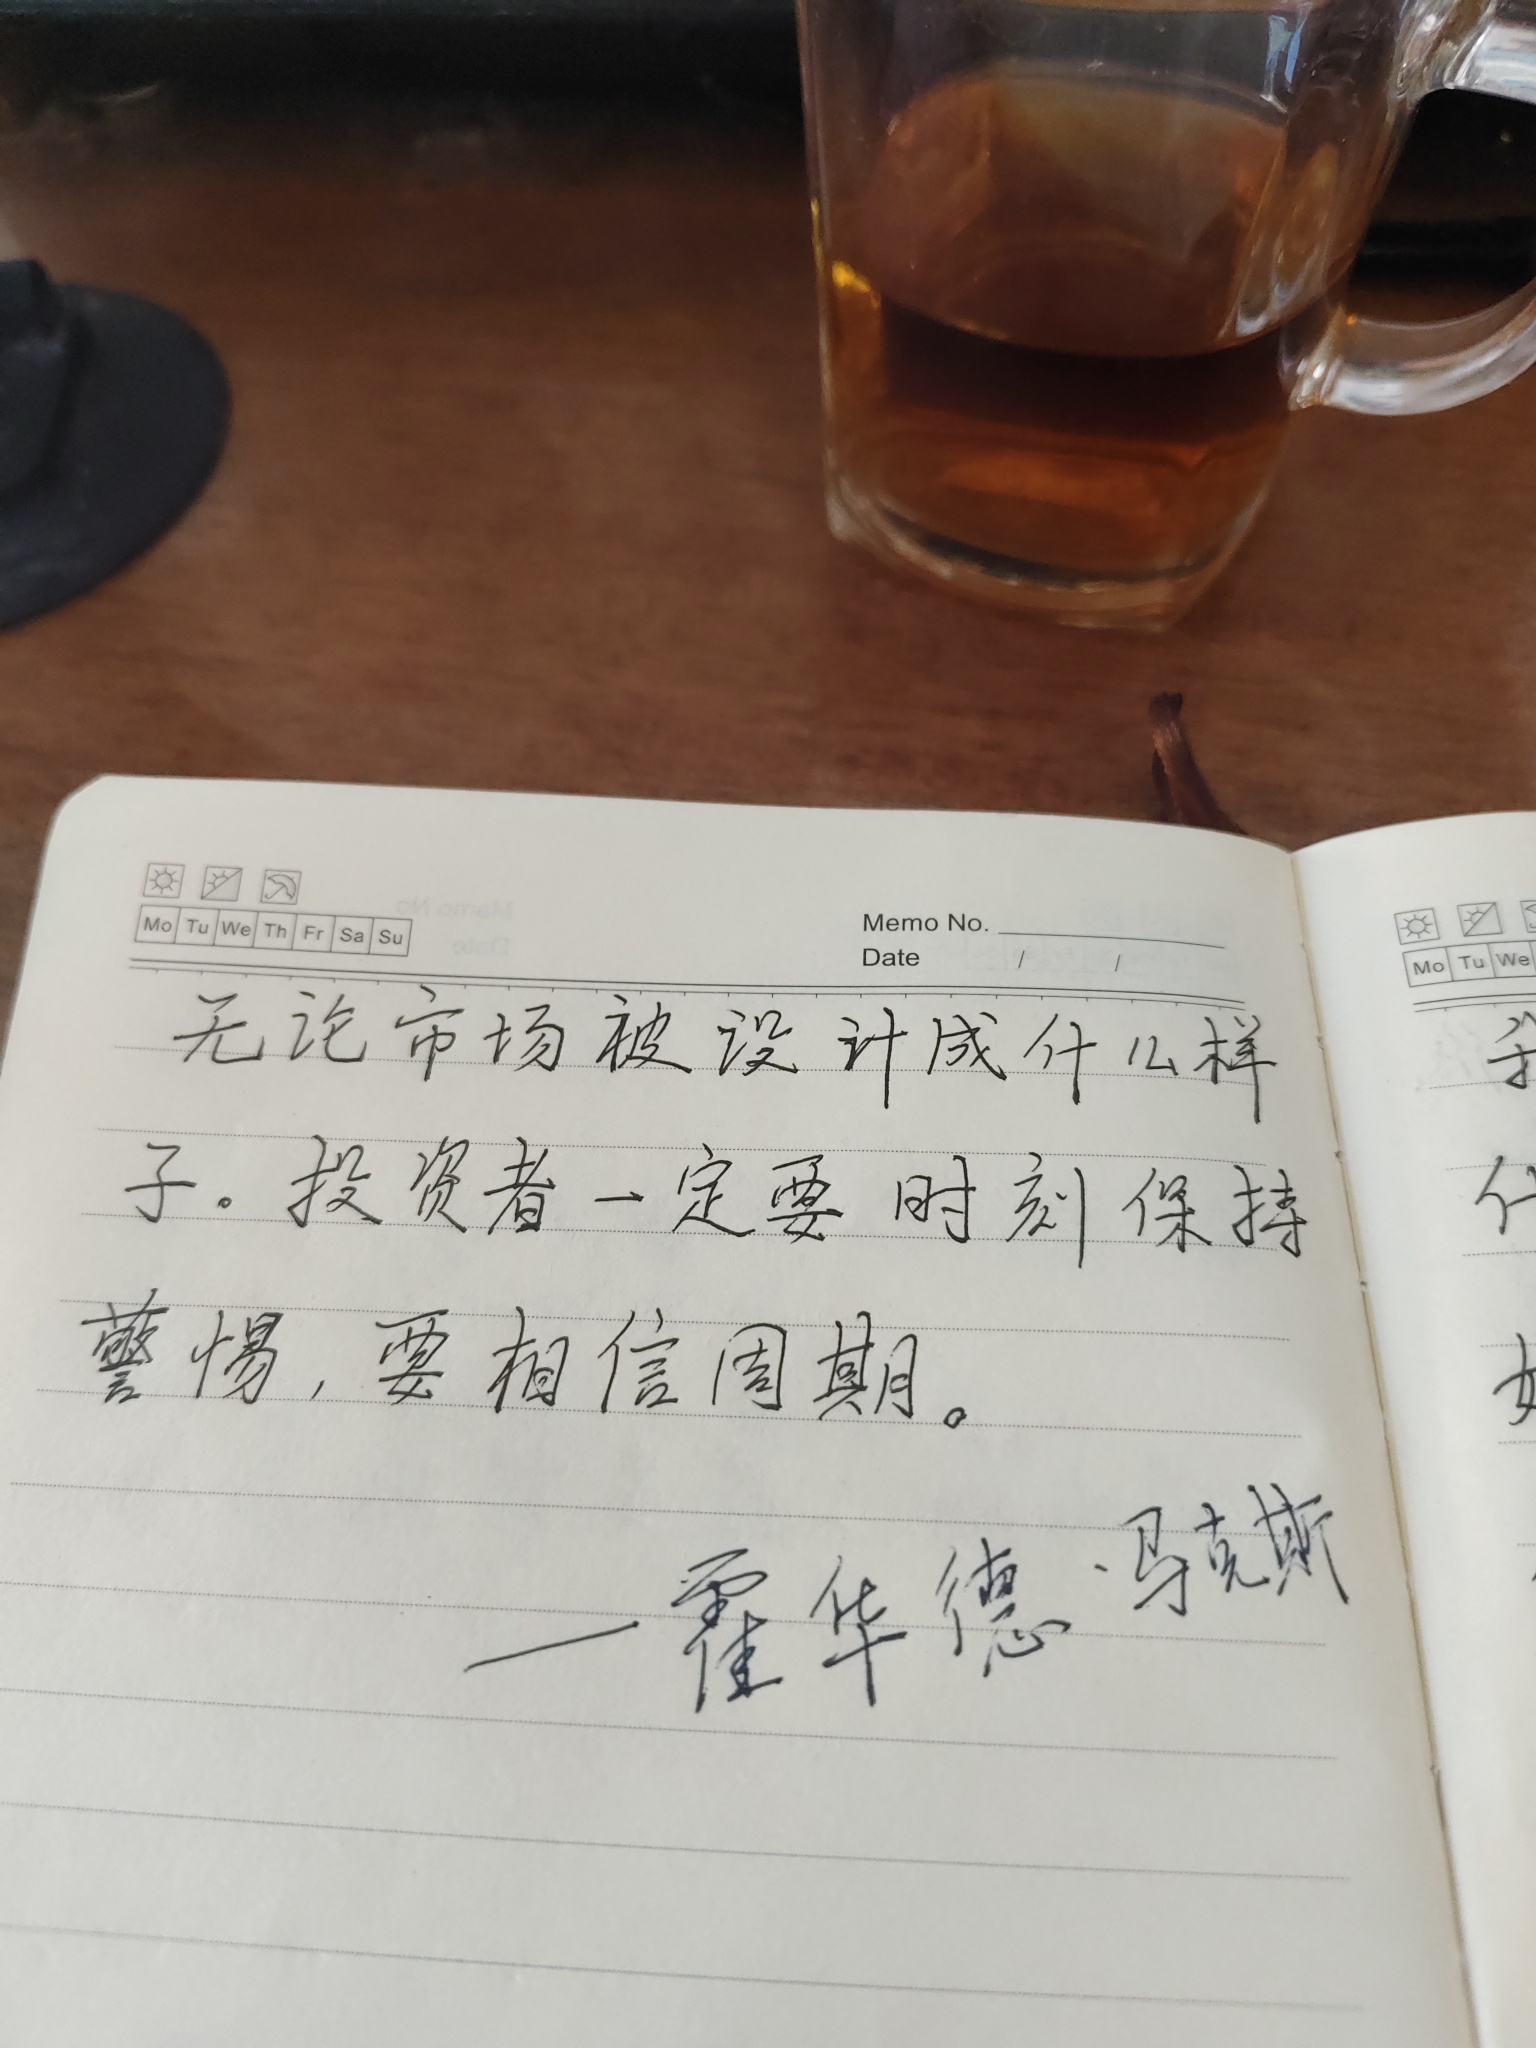 Mo Tu We Th Fr Sa Su
Memo No.
Date / /
无论市场被设计成什么样
子。投资者一定要时刻保持
警惕，要相信周期。
—霍华德·马克斯
Mo Tu We